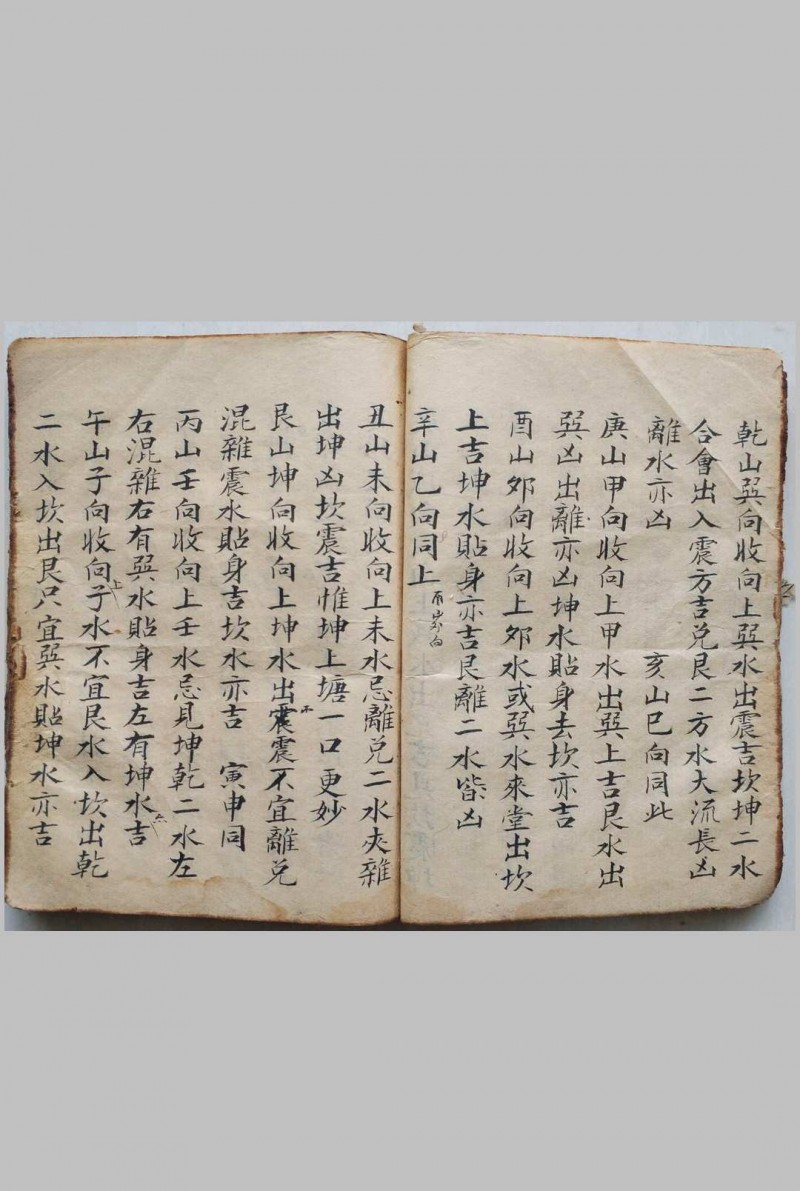 乾山巽向收向上巽水出震吉坎坤二水
合會出入震方吉兌艮二方水大流長凶
離水亦凶　亥山巳向同此
庚山甲向收向上甲水出巽上吉艮水出
巽凶出離亦凶坤水貼身去坎亦吉
酉山夘向收向上夘水或巽水來堂出坎
上吉坤水貼身亦吉艮離二水皆凶
辛山乙向同上
丑山未向收向上未水忌離兌二水夾雜
出坤凶坎震吉惟坤上塘一口更妙
艮山坤向收向上坤水出震震不宜離兌
混雜震水貼身吉坎水亦吉　寅申同
丙山壬向收向上壬水忌見坤乾二水左
右混雜右有巽水貼身吉左有坤水吉
午山子向收向子上水不宜艮水入坎出乾
二水入坎出艮只宜巽水貼坤水亦吉